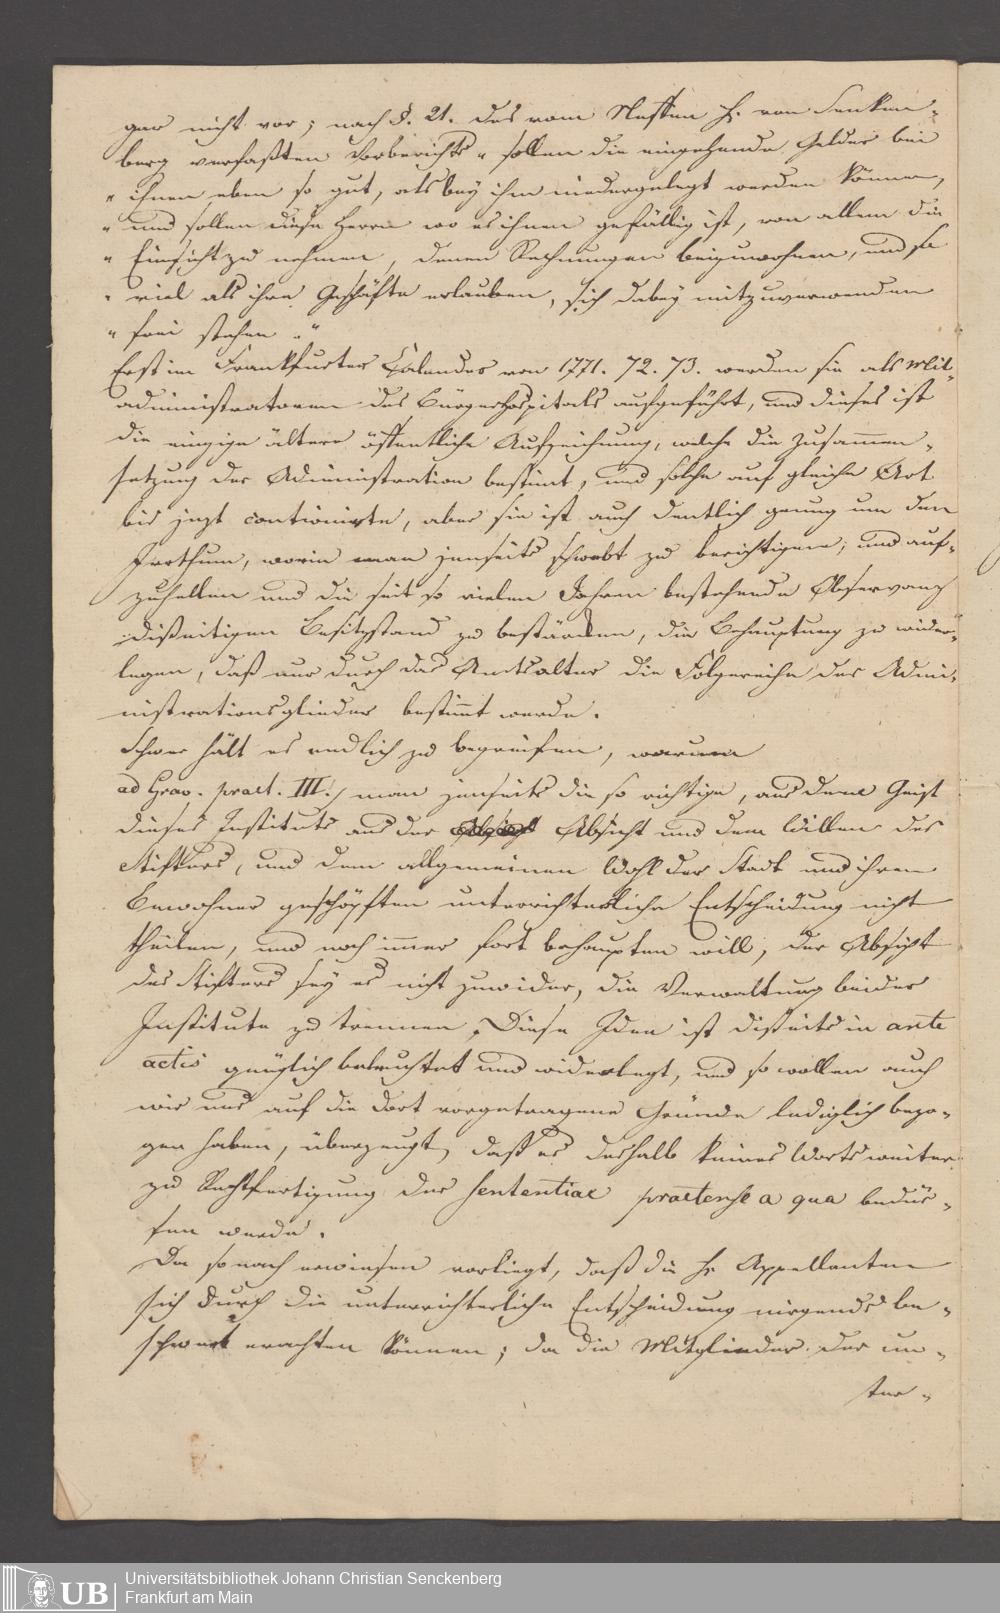 gar nicht vor; nach §. 21. des vom Neffen H. von Senken-
berg verfaßten Vorberichts „sollen die eingehende Gelder bei
„ ihnen eben so gut, als bey ihm niedergelegt werden können,
„ und sollen diese Herrn wo es ihnen gefällig ist, von allem die
„ Einsicht zu nehmen, denen Rechnungen beizuwohnen, und so
„ viel als ihre Geschäfte erlauben, sich dabey mitzuverwenden
„ frei stehen.“
Erst im Frankfurter Calender von 1771. 72. 73. werden sie als Mit-
administratoren des Bürgerhospitals aufgeführt, und dieses ist
die einzige ältere öffentliche Aufzeichnung, welche die Zusammen-
setzung der Administration bestimt, und solche auf gleiche Art
bis jezt continuirte, aber sie ist auch deutlich genug um den
Irrthum, worin man jenseits schwebt zu berichtigen, und auf-
zuhellen und die seit so vielen Jahren bestehende Observanz
disseitigen Besitzstand zu bestärken, die Behauptung zu wider-
legen, daß nur durch das Amtsalter die Folgereihe der Admi-
nistrationsglieder bestimt werde.
Schwer hält es endlich zu begreifen, warum
ad Grav. praet. III./ man jenseits die so richtige, aus dem Geist
dieses Instituts aus der Absicht und dem Willen des
Stifters, und dem allgemeinen Wohl der Stadt und ihrer
Bewohner geschöpften unterrichterliche Entscheidung nicht
theilen, und noch immer fort behaupten will, der Absicht
des Stifters sey es nicht zuwider, die Verwaltung beider
Institute zu trennen. Diese Idee ist disseits in ante
actis gänzlich beleuchtet und widerlegt, und so wollen auch
wir uns auf die dort vorgetragene Gründe lediglich bezo-
gen haben, überzeugt, daß es deshalb keines Worts weiter
zu Rechtfertigung der sententiae praetense a qua bedür-
fen werde.
Da so nach erwiesen vorliegt, daß die H. Appellanten
sich durch die unterrichterliche Entscheidung nirgends be-
schwert erachten können; da die Mitglieder der un-
ter-
Universitätsbibliothek Johann Christian Senckenberg
Frankfurt am Main
UB